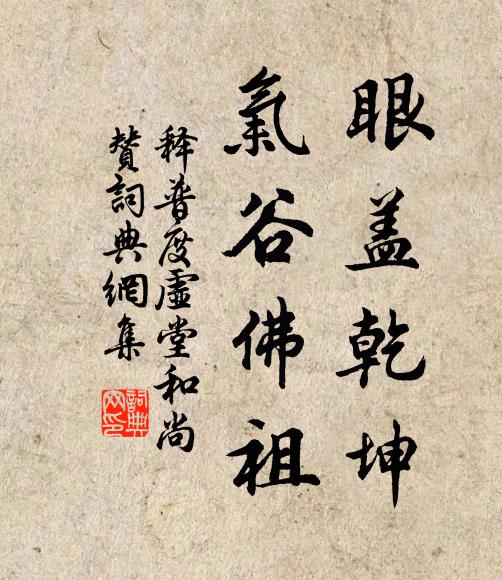 眼盖乾坤
氣谷佛祖
释普度虛堂和尚
賛詞典網集
詞典
网印